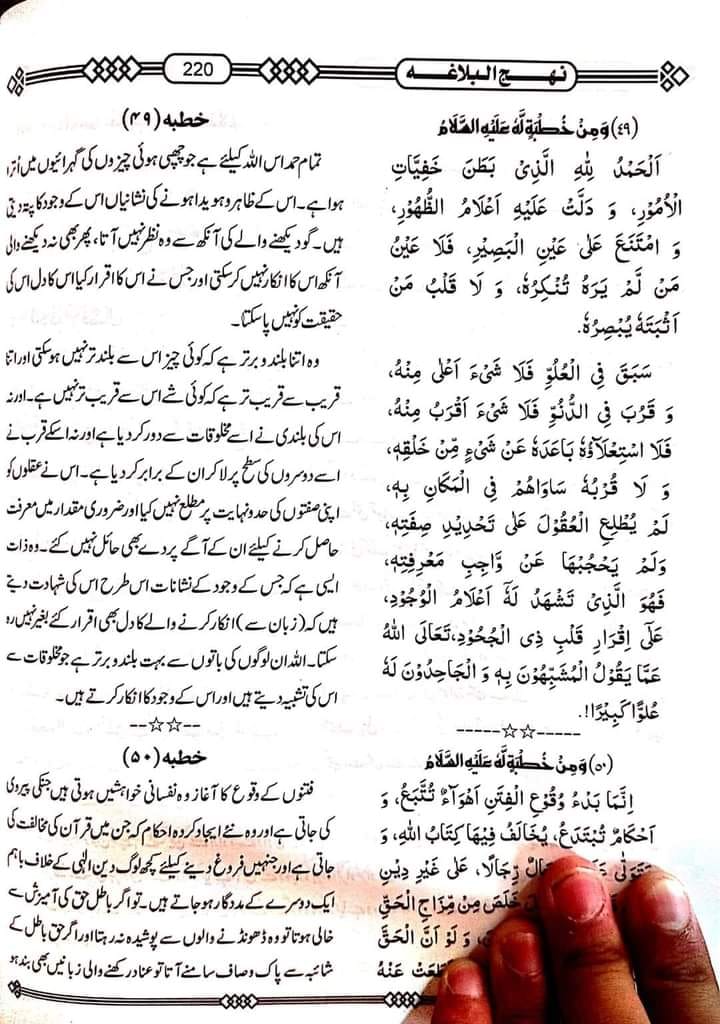 نہج البلاغہ
220
(٤٩) وَ مِنْ خُطْبَةٍ لَّهٗ عَلَيْهِ السَّلَامُ
اَلْحَمْدُ لِلّٰهِ الَّذِیْ بَطَنَ خَفِیَّاتِ
الْاُمُوْرِ، وَ دَلَّتْ عَلَیْهِ اَعْلَامُ الظُّهُوْرِ،
وَ امْتَنَعَ عَلٰی عَیْنِ الْبَصِیْرِ، فَلَا عَیْنُ
مَنْ لَّمْ یَرَهُ تُنْكِرُهٗ، وَ لَا قَلْبُ مَنْ
اَثْبَتَهٗ یُبْصِرُهٗ.
سَبَقَ فِی الْعُلُوِّ فَلَا شَیْءَ اَعْلٰی مِنْهُ،
وَ قَرُبَ فِی الدُّنُوِّ فَلَا شَیْءَ اَقْرَبُ مِنْهُ،
فَلَا اسْتِعْلَآؤُهٗ بَاعَدَهٗ عَنْ شَیْءٍ مِّنْ خَلْقِهٖ،
وَ لَا قُرْبُهٗ سَاوَاهُمْ فِی الْمَكَانِ بِهٖ،
لَمْ یُطْلِعِ الْعُقُوْلَ عَلٰی تَحْدِیْدِ صِفَتِهٖ،
وَلَمْ یَحْجُبْهَا عَنْ وَّاجِبِ مَعْرِفَتِهٖ،
فَهُوَ الَّذِیْ تَشْهَدُ لَهٗۤ اَعْلَامُ الْوُجُوْدِ،
عَلٰۤی اِقْرَارِ قَلْبِ ذِی الْجُحُوْدِ، تَعَالَی اللهُ
عَمَّا یَقُوْلُ الْمُشَبِّهُوْنَ بِهٖ وَ الْجَاحِدُوْنَ لَهٗ
عُلُوًّا كَبِیْرًا!.
-----☆☆-----
(٥٠) وَ مِنْ خُطْبَةٍ لَّهٗ عَلَيْهِ السَّلَامُ
اِنَّمَا بَدْءُ وُقُوْعِ الْفِتَنِ اَهْوَآءٌ تُتَّبَعُ، وَ
اَحْكَامٌ تُبْتَدَعُ، یُخَالَفُ فِیْهَا كِتَابُ اللهِ، وَ
رِجَالًا، عَلٰی غَیْرِ دِیْنِ
خَلَصَ مِنْ مِّزَاجِ الْحَقِّ
وَ لَوْ اَنَّ الْحَقَّ
عَنْهُ
خطبہ (۴۹)
تمام حمد اس اللہ کیلئے ہے جو چھپی ہوئی چیزوں کی گہرائیوں میں اُترا
ہوا ہے۔ اس کے ظاہر و ہویدا ہونے کی نشانیاں اس کے وجود کا پتہ دیتی
ہیں۔ گو دیکھنے والے کی آنکھ سے وہ نظر نہیں آتا، پھر بھی نہ دیکھنے والی
آنکھ اس کا انکار نہیں کر سکتی اور جس نے اس کا اقرار کیا اس کا دل اس کی
حقیقت کو نہیں پا سکتا۔
وہ اتنا بلند و برتر ہے کہ کوئی چیز اس سے بلند تر نہیں ہو سکتی اور اتنا
قریب سے قریب تر ہے کہ کوئی شے اس سے قریب تر نہیں ہے۔ اور نہ
اس کی بلندی نے اسے مخلوقات سے دور کر دیا ہے اور نہ اسکے قرب نے
اسے دوسروں کی سطح پر لا کر ان کے برابر کر دیا ہے۔ اس نے عقلوں کو
اپنی صفتوں کی حد و نہایت پر مطلع نہیں کیا اور ضروری مقدار میں معرفت
حاصل کرنے کیلئے ان کے آگے پردے بھی حائل نہیں کئے۔ وہ ذات
ایسی ہے کہ جس کے وجود کے نشانات اس طرح اس کی شہادت دیتے
ہیں کہ (زبان سے) انکار کرنے والے کا دل بھی اقرار کئے بغیر نہیں رہ
سکتا۔ اللہ ان لوگوں کی باتوں سے بہت بلند و برتر ہے جو مخلوقات سے
اس کی تشبیہ دیتے ہیں اور اس کے وجود کا انکار کرتے ہیں۔
--☆☆--
خطبہ (۵۰)
فتنوں کے وقوع کا آغاز وہ نفسانی خواہشیں ہوتی ہیں جنکی پیروی
کی جاتی ہے اور وہ نئے ایجاد کردہ احکام کہ جن میں قرآن کی مخالفت کی
جاتی ہے اور جنہیں فروغ دینے کیلئے کچھ لوگ دین الٰہی کے خلاف باہم
ایک دوسرے کے مددگار ہو جاتے ہیں۔ تو اگر باطل حق کی آمیزش سے
خالی ہوتا تو وہ ڈھونڈنے والوں سے پوشیدہ نہ رہتا اور اگر حق باطل کے
شائبہ سے پاک و صاف سامنے آتا تو عناد رکھنے والی زبانیں بھی بند ہو